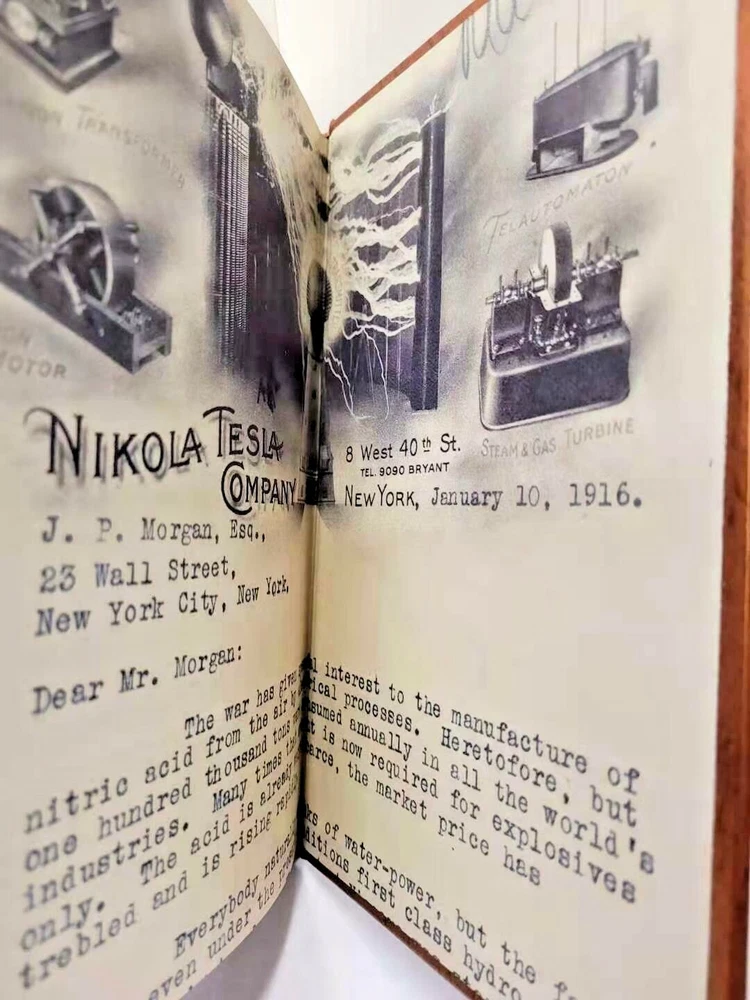 TRANSFORMER
TELAUTOMATON
MOTOR
STEAM & GAS TURBINE
NIKOLA TESLA
COMPANY
8 West 40th St.
TEL. 9090 BRYANT
NEW YORK, January 10, 1916.
J. P. Morgan, Esq.,
23 Wall Street,
New York City, New York,
Dear Mr. Morgan:
The war has given interest to the manufacture of
nitric acid from the air by processes. Heretofore, but
one hundred thousand tons annually in all the world's
industries. Many times is now required for explosives
only. The acid is already the market price has
trebled and is rising
Everybody of water-power, but the
even under the first class hydro